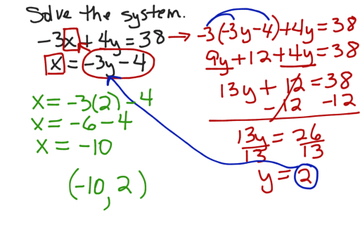 Solve the system.
-3x + 4y = 38 → -3(-3y - 4) + 4y = 38
x = -3y - 4
9y + 12 + 4y = 38
13y + 12 = 38
- 12 - 12
13y = 26
13 13
y = 2
x = -3(2) - 4
x = -6 - 4
x = -10
(-10, 2)